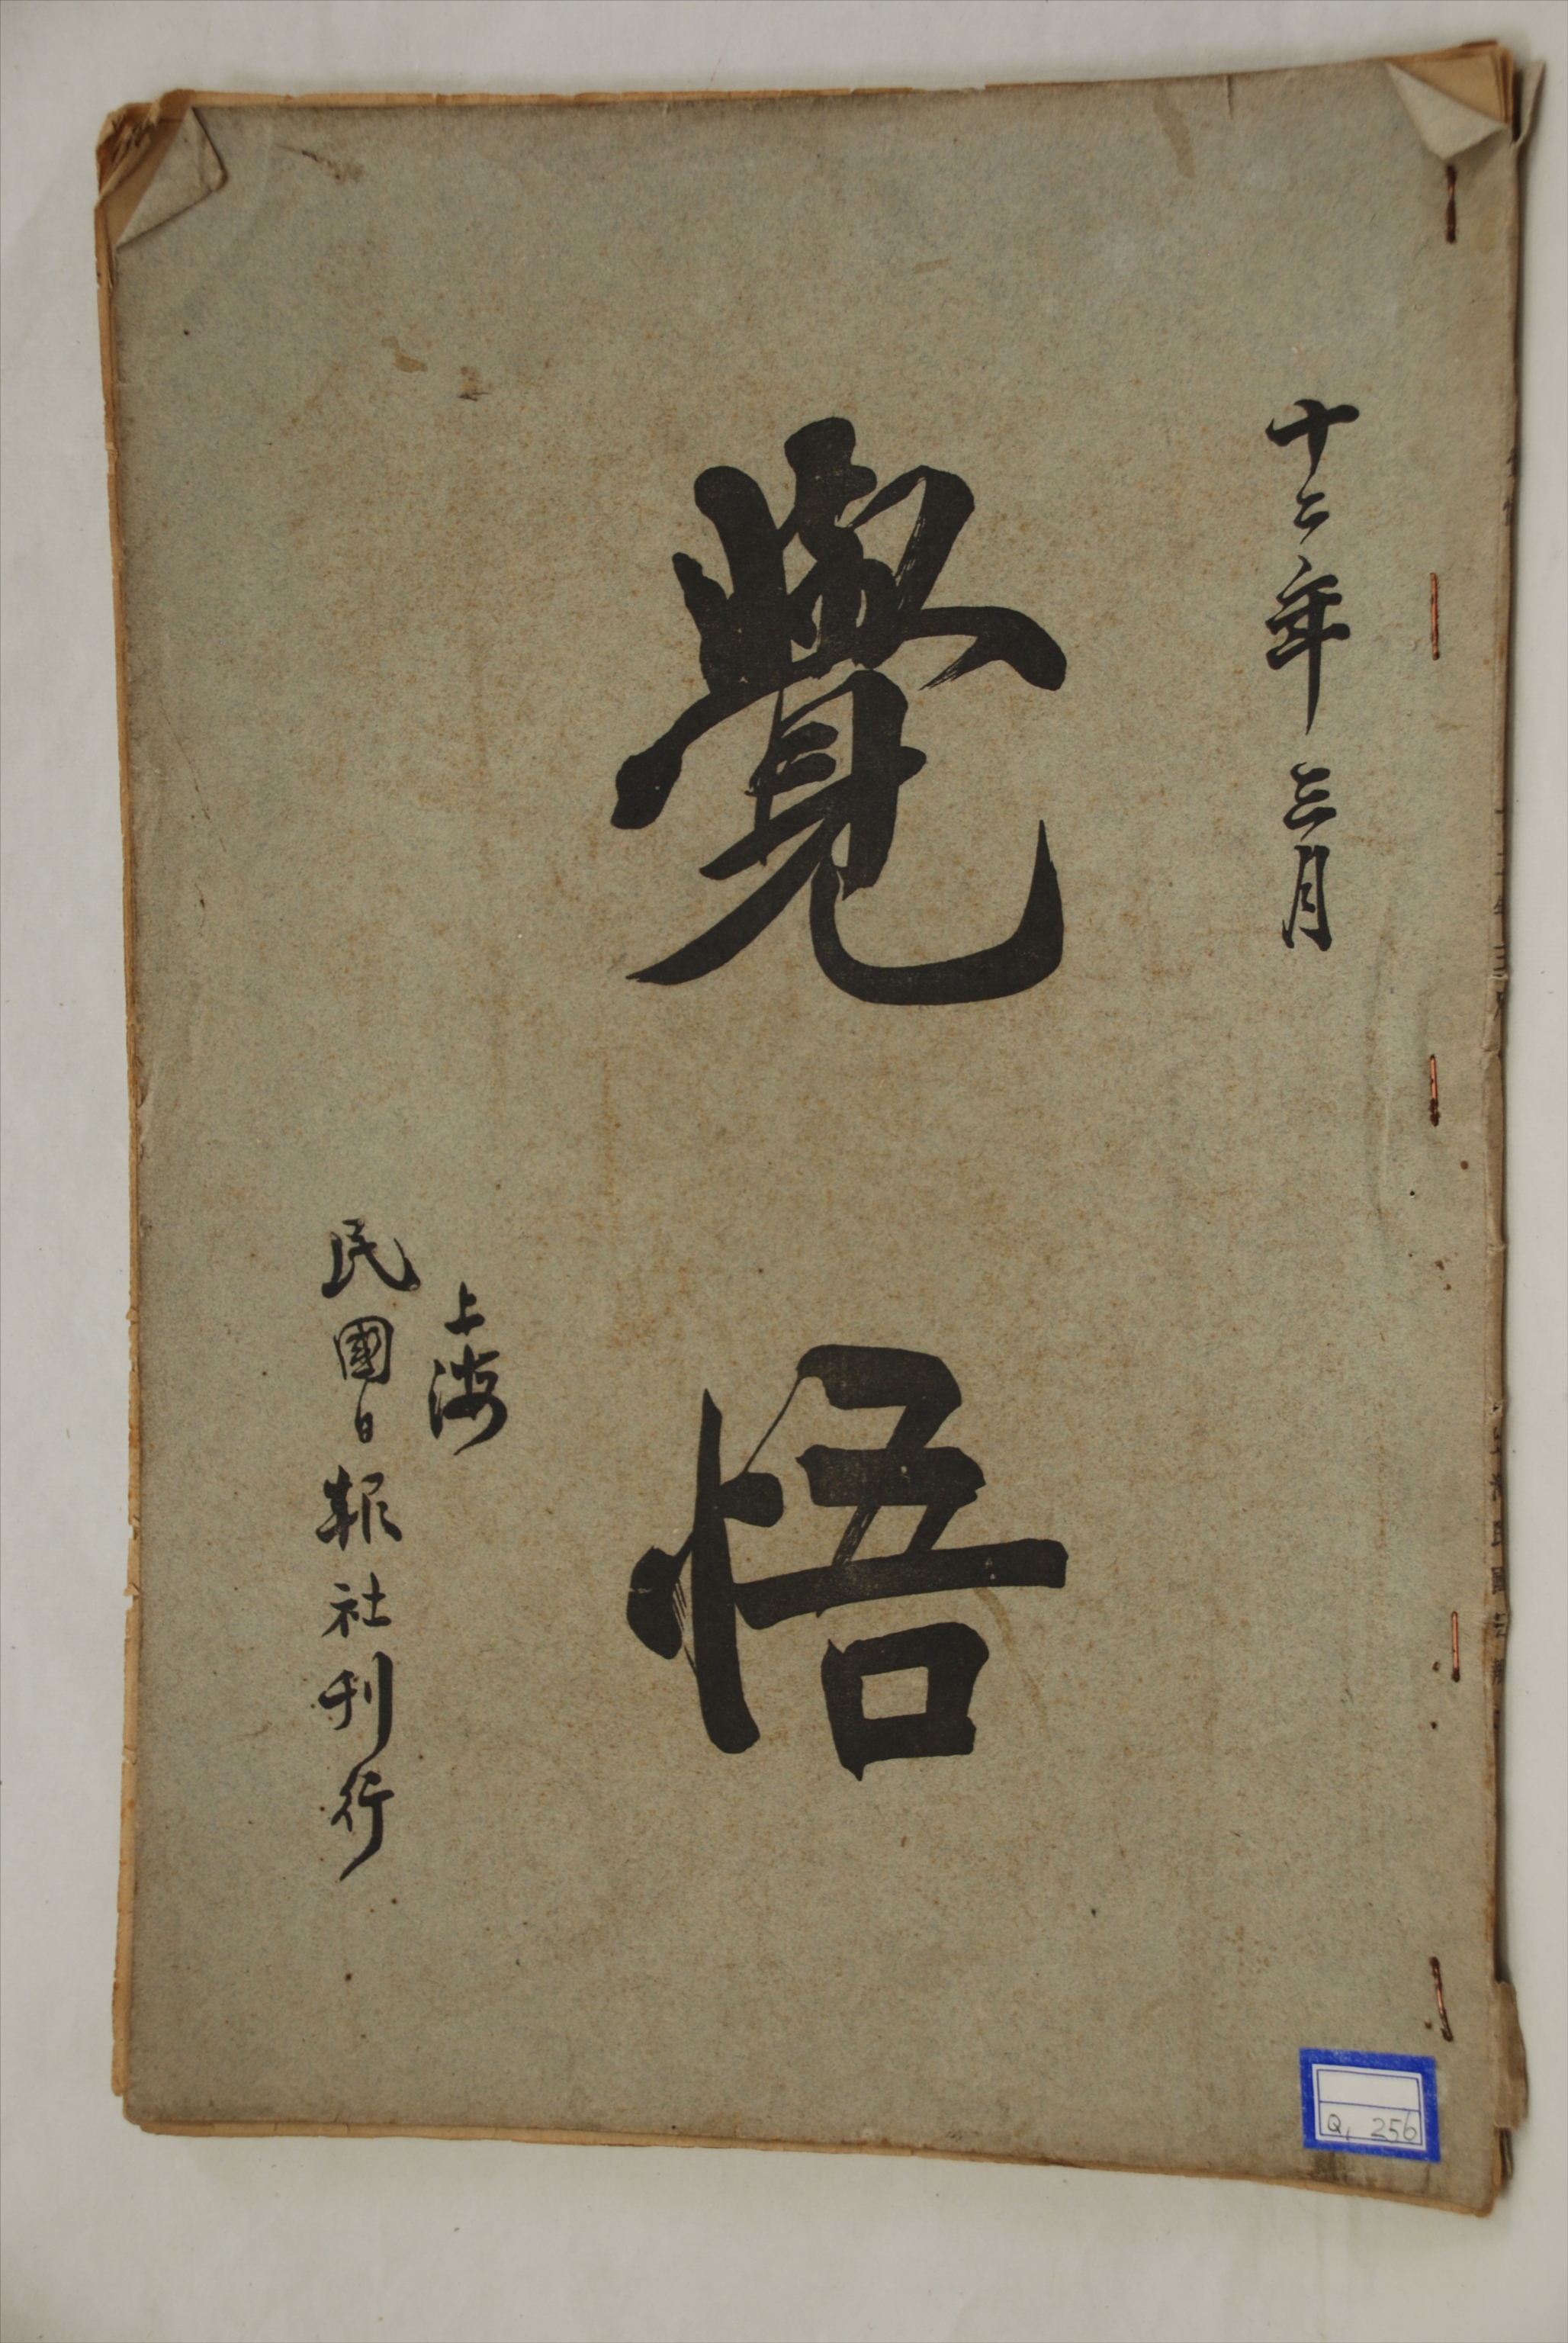 十二年三月
覺悟
上海
民國日報社刊行
Q1 256